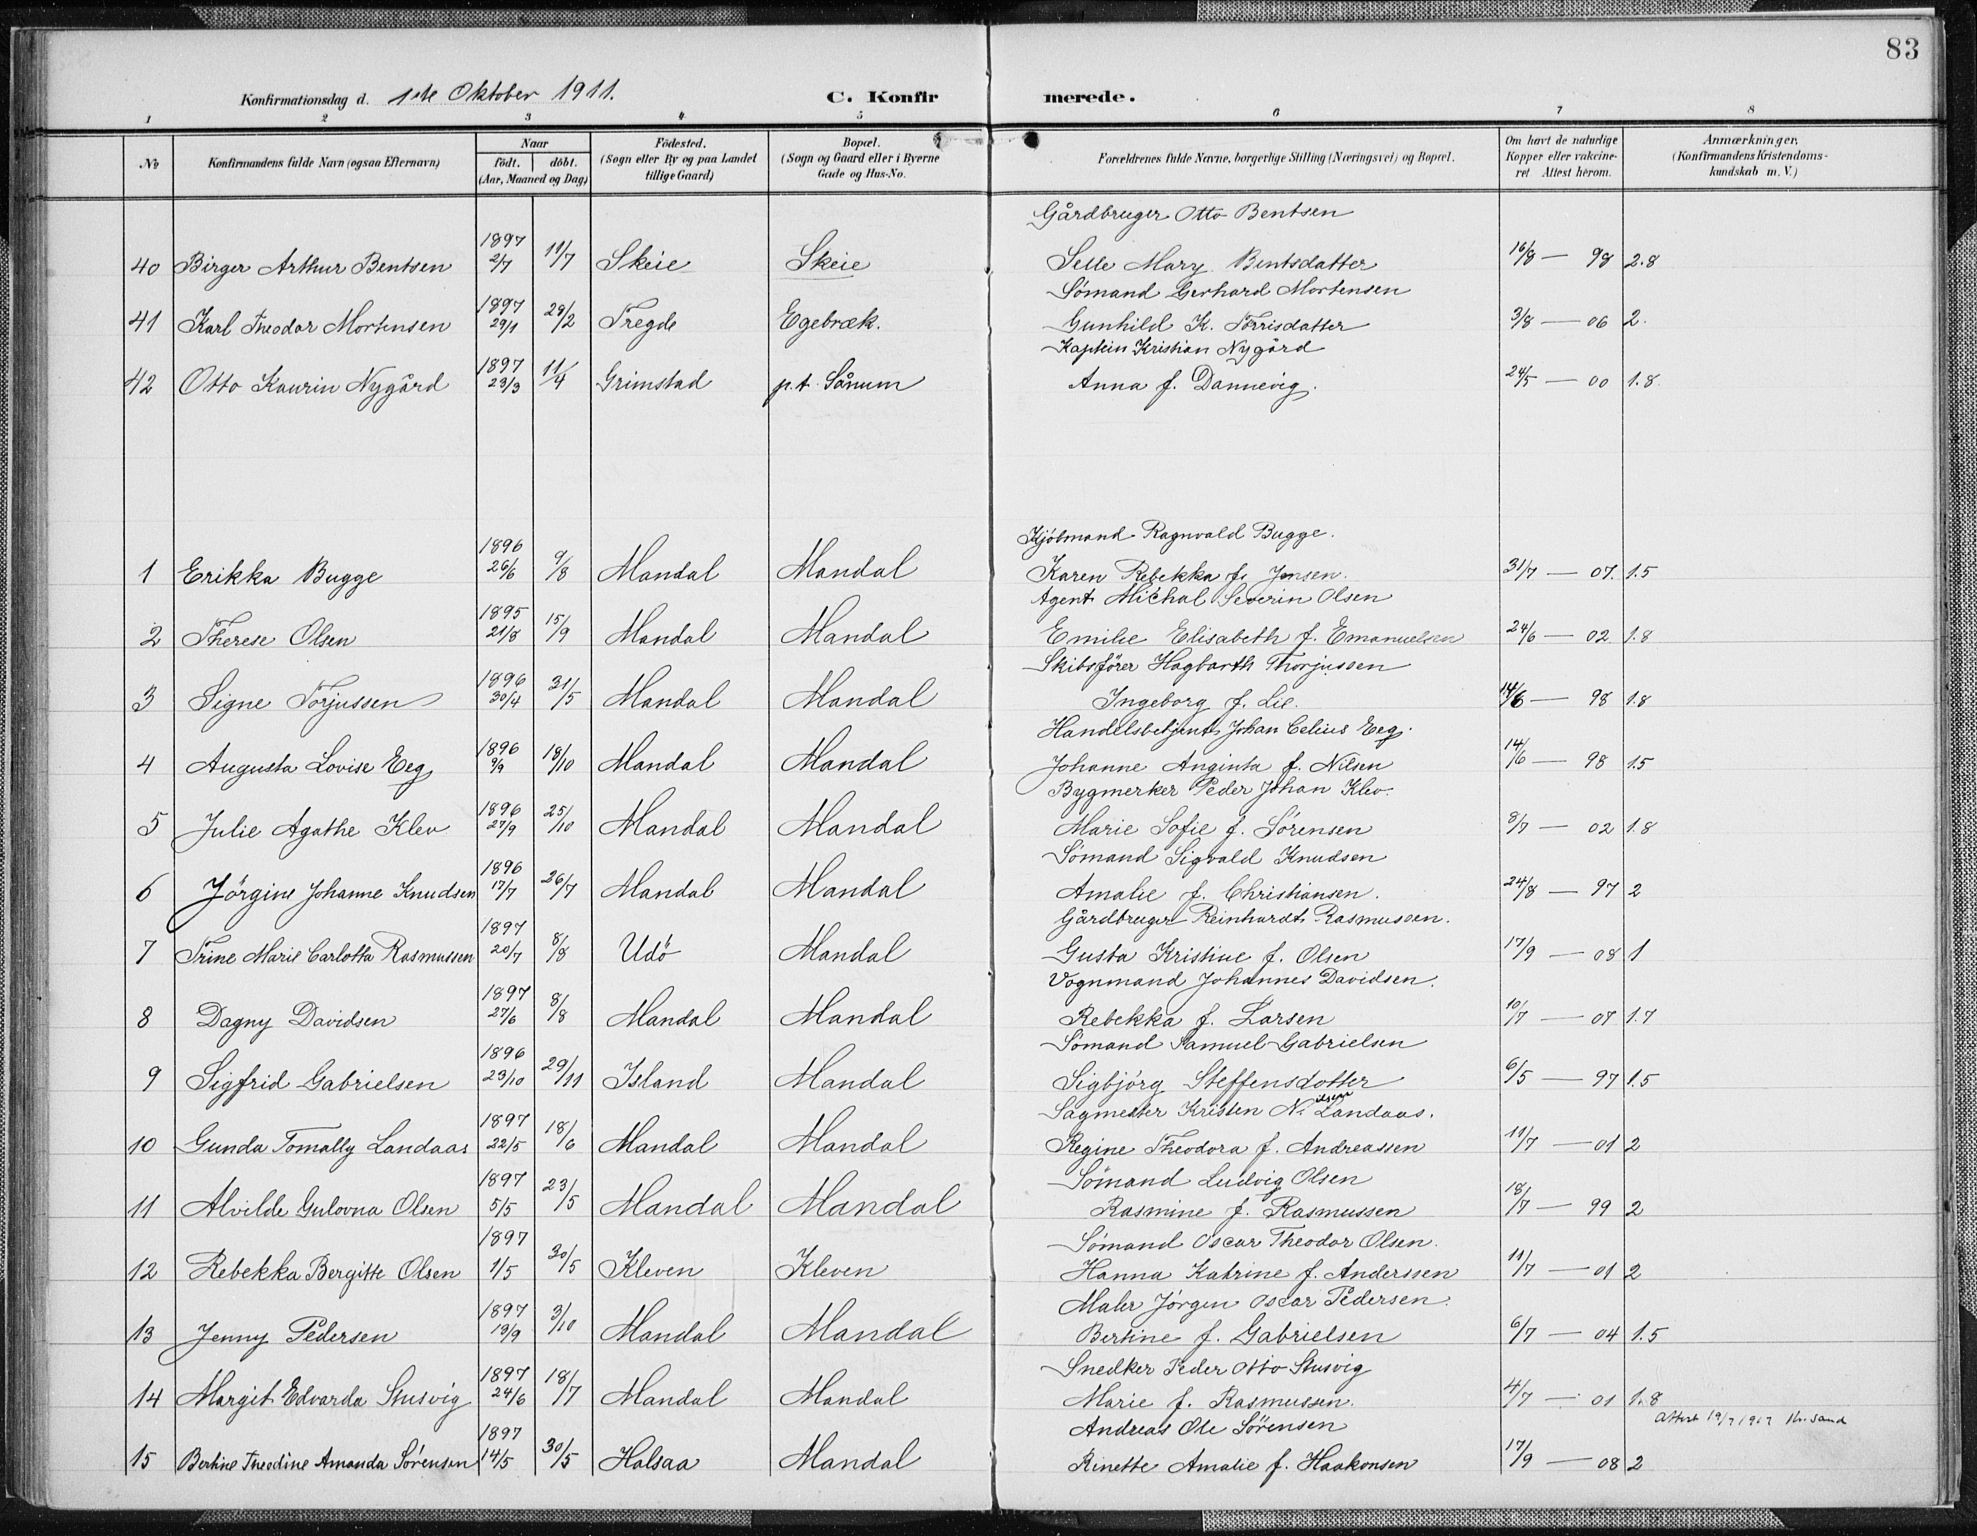 83
Konfirmationsdag d. 1ste Oktober 1911. C. Konfirmerede.
1 2 3 4 5 6 7 8
No Konfirmandens fulde Navn (ogsaa Efternavn) Naar født. døbt. (Aar, Maaned og Dag) Fødested. (Sogn eller By og paa Landet tillige Gaard) Bopæl. (Sogn og Gaard eller i Byerne Gade og Hus-No. Forældrenes fulde Navne, borgerlige Stilling (Næringsvei) og Bopæl. Om havt de naturlige Kopper eller vakcineret Attest herom. Anmærkninger. (Konfirmandens Kristendomskundskab m. V.)
Gårdbruger Otto Bentsen
40 Birger Arthur Bentsen 1897 2/7 11/7 Skeie Skeie Selle Mary Bentsdatter 16/8 — 98 2.8
Sømand Gerhard Mortensen
41 Karl Theodor Mortensen 1897 29/1 28/2 Tregde Egebræk. Gunhild K. Torrisdatter 3/8 — 06 2.
Kaptein Kristian Nygård
42 Otto Kaurin Nygård 1897 23/3 11/4 Grimstad p.t. Sånum Anna f. Dannevig. 24/5 — 00 1.8
Kjøbmand Ragnvald Bugge.
1 Erikka Bugge 1896 26/6 9/8 Mandal Mandal Karen Rebekka f. Jensen. 31/7 — 07. 1.5
Agent Michal Severin Olsen
2 Therese Olsen 1895 21/8 15/9 Mandal Mandal Emilie Elisabeth f. Emanuelsen 24/6 — 02 1.8
Skibsfører Hagbarth Thorjussen
3 Signe Torjussen 1896 30/4 31/5 Mandal Mandal Ingeborg f. Lie. 14/6 — 98 1.8
Handelsbetjent Johan Celius Eeg.
4 Augusta Lovise Eeg 1896 9/9 18/10 Mandal Mandal Johanne Anginta f. Nilsen 14/6 — 98 1.5
Bygmerker Peder Johan Klev.
5 Julie Agathe Klev 1896 27/9 25/10 Mandal Mandal Marie Sofie f. Sørensen 8/7 — 02 1.8
Sømand Sigvald Knudsen
6 Jørgine Johanne Knudsen 1896 17/7 26/7 Mandal Mandal Amalie f. Christiansen. 24/8 — 97 2
Gårdbruger Reinhardt Rasmussen.
7 Trine Marie Carlotta Rasmussen 1897 20/7 8/8 Udø Mandal Gusta Kristine f. Olsen 17/9 — 08 1
Vognmand Johannes Davidsen.
8 Dagny Davidsen 1897 27/6 8/8 Mandal Mandal Rebekka f. Larsen 10/7 — 07 1.7
Sømand Samuel Gabrielsen
9 Sigfrid Gabrielsen 1896 23/10 29/11 Island Mandal Sigbjørg Steffensdotter 6/5 — 97 1.5
Sagmester Kristen Nilsen Landaas.
10 Gunda Tomally Landaas 1897 22/5 18/6 Mandal Mandal Regine Theodora f. Andreassen 11/7 — 01 2
Sømand Ludvig Olsen
11 Alvilde Gulovna Olsen 1897 5/5 23/5 Mandal Mandal Rasmine f. Rasmussen 18/7 — 99 2
Sømand Oscar Theodor Olsen.
12 Rebekka Bergitte Olsen 1897 1/5 30/5 Kleven Kleven Hanna Katrine f. Anderssen 11/7 — 01 2
Maler Jørgen Oscar Pedersen.
13 Jenny Pedersen 1897 13/9 3/10 Mandal Mandal Bertine f. Gabrielsen 6/7 — 04 1.5
Snedker Peder Otto Stusvig
14 Margit Edvarda Stusvig 1897 24/6 18/7 Mandal Mandal Marie f. Rasmussen. 4/7 — 01 1.8
Andreas Ole Sørensen Attest 19/7 1917 Kr.sand
15 Bertine Theodine Amanda Sørensen 1897 14/5 30/5 Halsaa Mandal Rinette Amalie f. Haakonsen 17/9 — 08 2